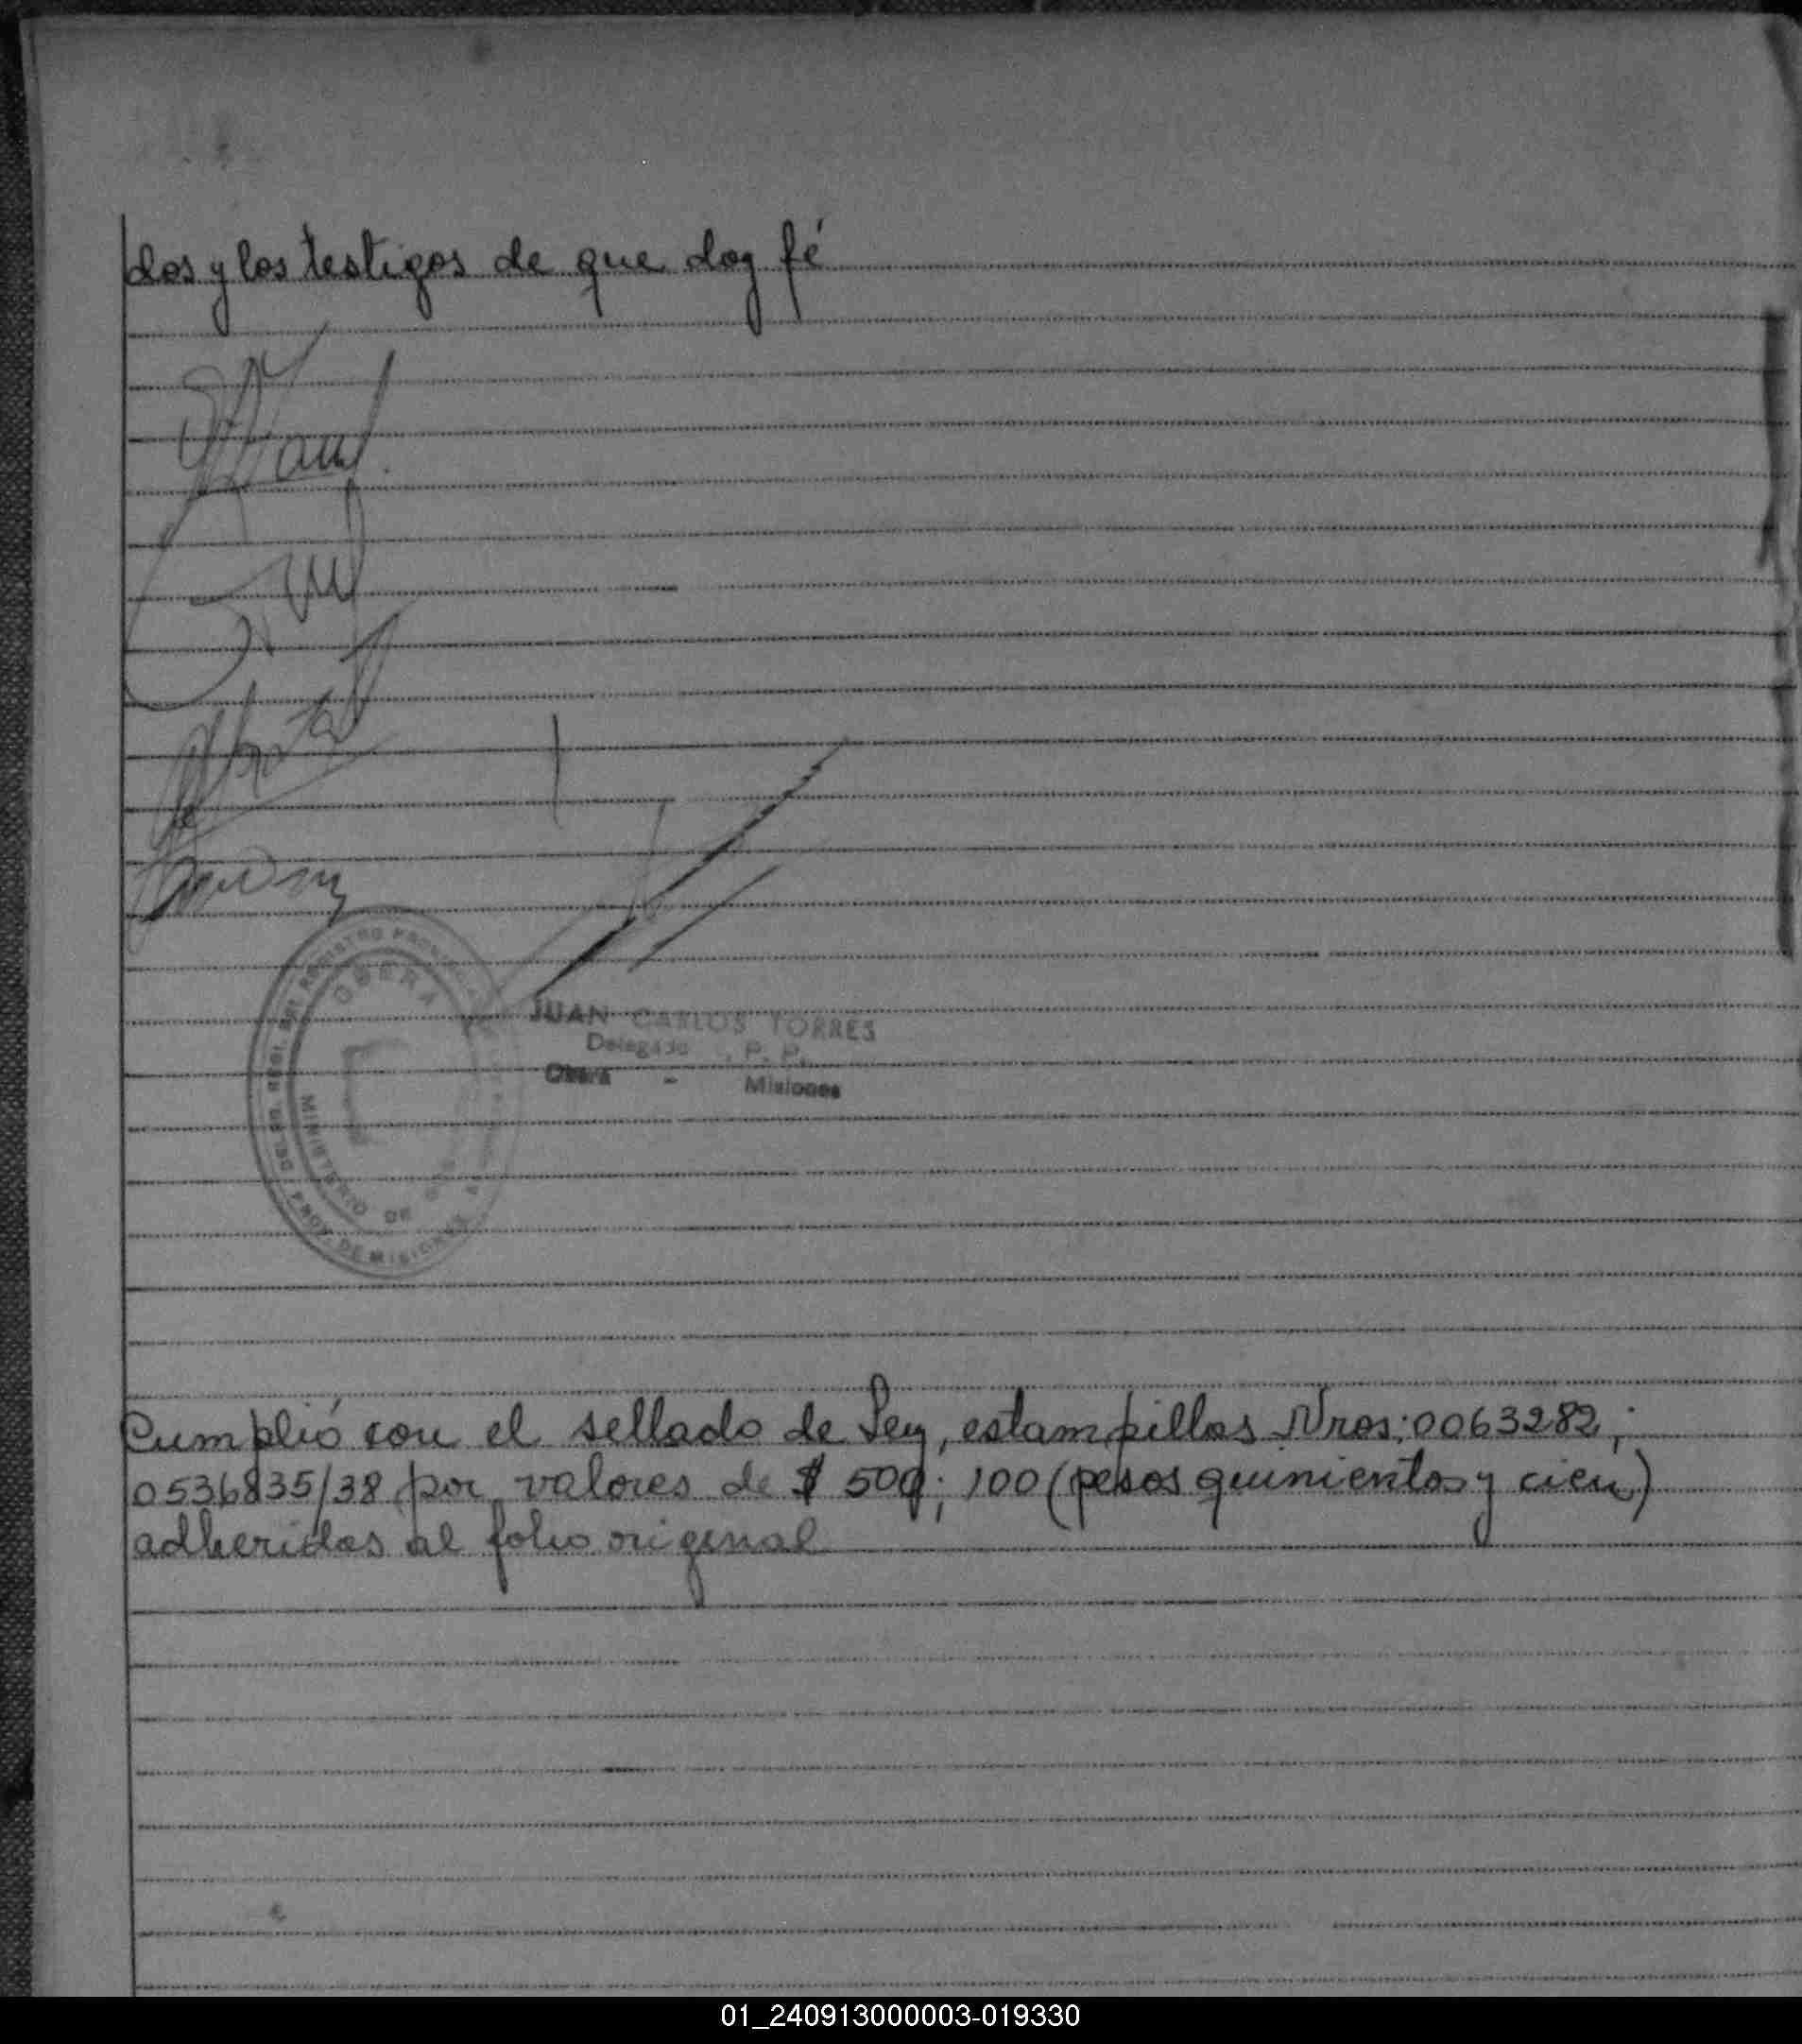 dos y los testigos de que doy fé
OBERA
MINISTERIO DE
PROV. DE MISIONES
JUAN CARLOS TORRES
Delegado P. P.
Oberá - Misiones
Cumplió con el sellado de Ley, estampillas Nros: 0063282;
0536835/38 por valores de $ 500; 100 (pesos quinientos y cien)
adheridas al folio original
01_240913000003-019330